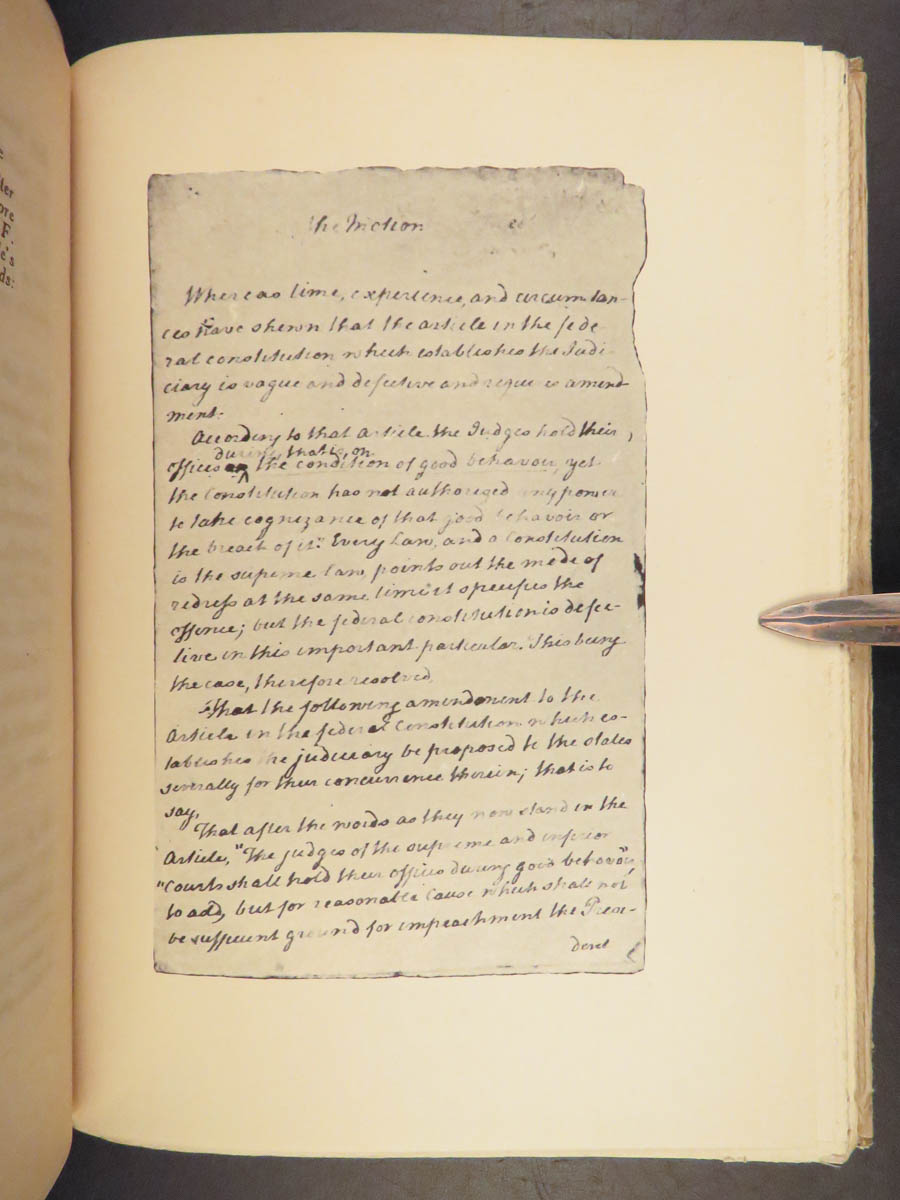 ter
ore
F.
e's
ds:
the Friction
Whereas time, experience, and circumstan-
ces have shewn that the article in the fede-
ral constitution which establishes the Judi-
ciary is vague and defective and requires amend-
ment:
According to that article the Judges hold their,
during, that is, on
offices the condition of good behavoir, yet
the Constitution has not authorized any power
to take cognizance of that good behavoir or
the breach of it." Every Law, and a Constitution
is the supreme law, points out the mode of
redress at the same time it specifies the
offence; but the federal constitution is defec-
tive in this important particular. This being
the case, therefore resolved,
That the following amendment to the
Article in the federal Constitution which es-
tablishes the judiciary be proposed to the states
severally for their concurrence therein; that is to
say,
That after the words as they now stand in the
Article, "The judges of the supreme and inferior
"Courts shall hold their offices during good behavoir,"
to add, but for reasonable cause which shall not
be sufficient ground for impeachment the Presi-
dent